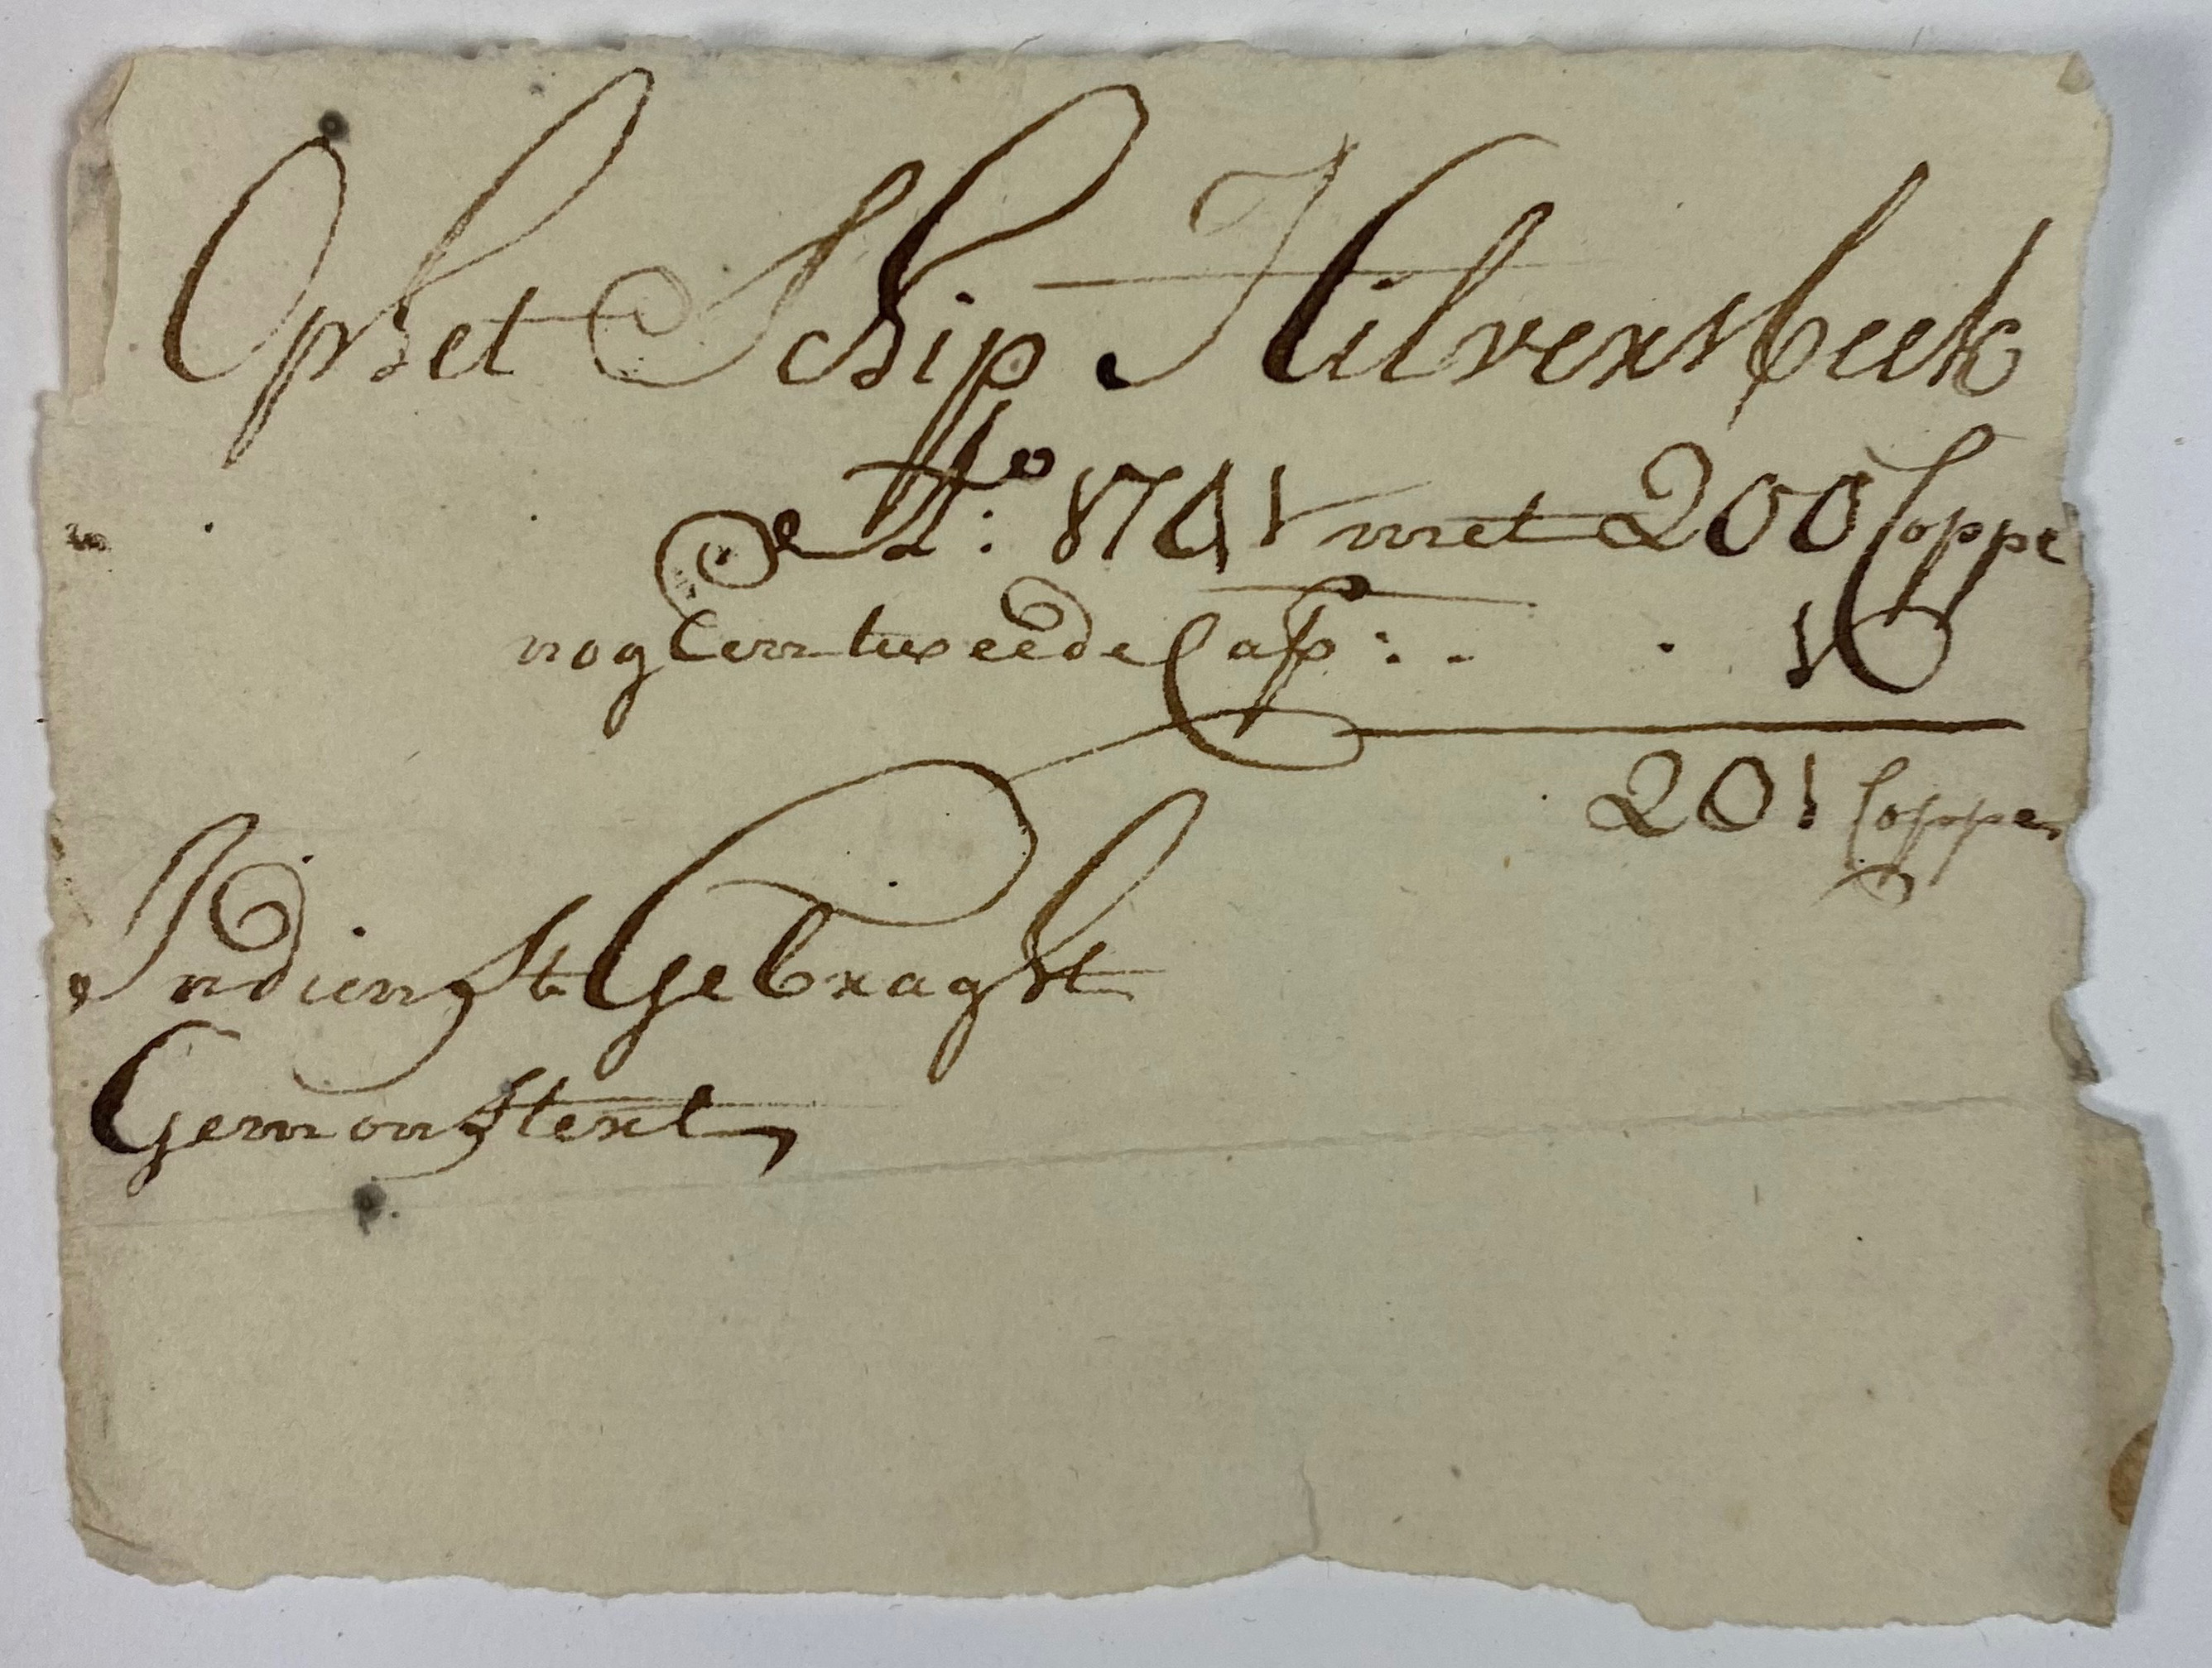 Op het Schip Hilversbeek
A.º 1741 met 200 Coppe
nog Een tweede Cap: . . . 1
201 Coppen
In dienst Gebraght
Gemonstert